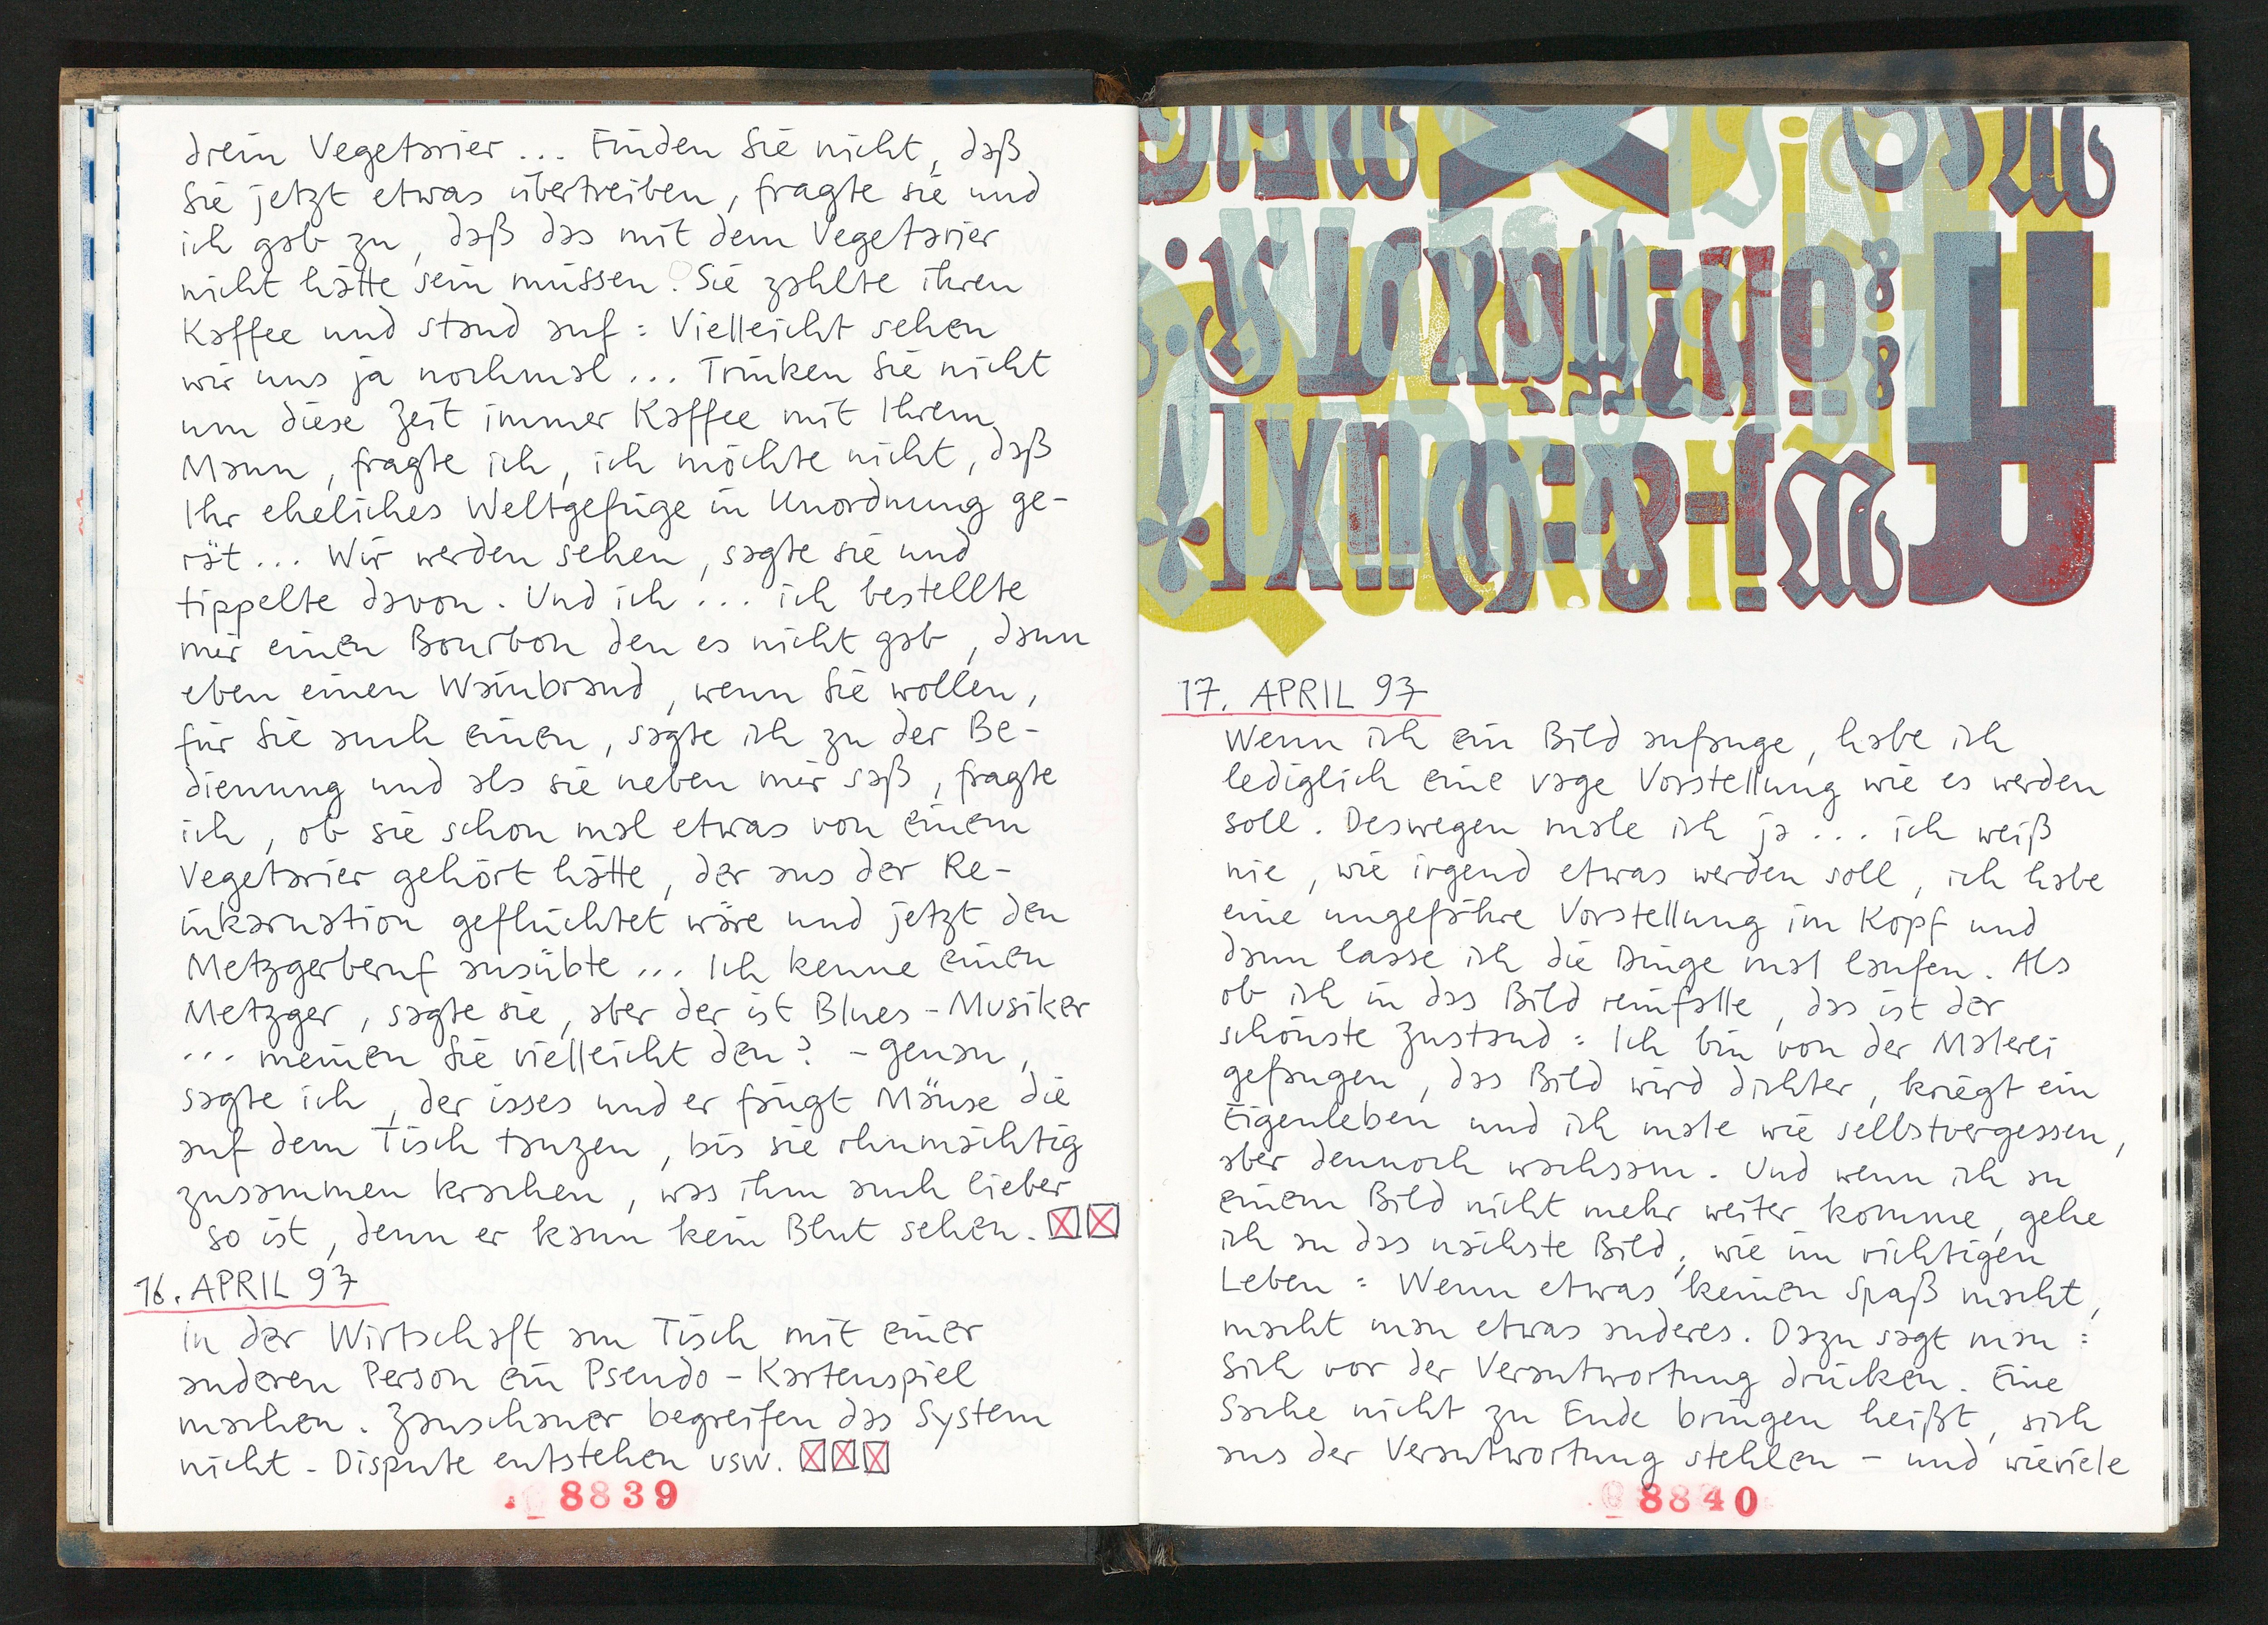 drein Vegetarier... Finden Sie nicht, daß
Sie jetzt etwas übertreiben, fragte sie und
ich gab zu, daß das mit dem Vegetarier
nicht hätte sein müssen. Sie zahlte ihren
Kaffee und stand auf: Vielleicht sehen
wir uns ja nochmal... Trinken Sie nicht
um diese Zeit immer Kaffee mit Ihrem
Mann, fragte ich, ich möchte nicht, daß
Ihr eheliches Weltgefüge in Unordnung ge-
rät... Wir werden sehen, sagte sie und
tippelte davon. Und ich... ich bestellte
mir einen Bourbon den es nicht gab, dann
eben einen Wainbrand, wenn Sie wollen,
für Sie auch einen, sagte ich zu der Be-
dienung und als sie neben mir saß, fragte
ich, ob sie schon mal etwas von einem
Vegetarier gehört hätte, der aus der Re-
inkarnation geflüchtet wäre und jetzt den
Metzgerberuf ausübte... Ich kenne einen
Metzger, sagte sie, aber der ist Blues-Musiker
... meinen Sie vielleicht den? - genau,
sagte ich, der isses und er fängt Mäuse die
auf dem Tisch tanzen, bis sie ohnmächtig
zusammen krachen, was ihm auch lieber
so ist, denn er kann kein Blut sehen.
16. APRIL 97
in der Wirtschaft am Tisch mit einer
anderen Person ein Pseudo-Kartenspiel
machen. Zauschauer begreifen das System
nicht - Dispute entstehen usw.
8839
17. APRIL 97
Wenn ich ein Bild anfange, habe ich
lediglich eine vage Vorstellung wie es werden
soll. Deswegen male ich ja... ich weiß
nie, wie irgend etwas werden soll, ich habe
eine ungefähre Vorstellung im Kopf und
dann lasse ich die Dinge mal laufen. Als
ob ich in das Bild reinfalle, das ist der
schönste Zustand: Ich bin von der Malerei
gefangen, das Bild wird dichter, kriegt ein
Eigenleben und ich male wie selbstvergessen,
aber dennoch wachsam. Und wenn ich an
einem Bild nicht mehr weiter komme, gehe
ich an das nächste Bild, wie im richtigen
Leben: Wenn etwas keinen Spaß macht,
macht man etwas anderes. Dazu sagt man:
Sich vor der Verantwortung drücken. Eine
Sache nicht zu Ende bringen heißt, sich
aus der Verantwortung stehlen - und wieviele
8840